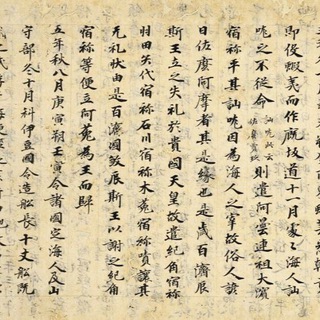 即役蝦夷而作厩坂道十一月處々海人訕
哤之不從命訕哤此云佐麼賣玖則遣阿曇連祖大濱
宿祢平其訕哤因為海人之宰故俗人諺
曰佐麼阿摩者其是緣也是歲百濟辰
斯王立之失礼於貴國天皇故遣紀角宿祢
羽田矢代宿祢石川宿祢木菟宿祢嘖讓其
无礼狀由是百濟國殺辰斯王以謝之紀角
宿祢等便立阿花為王而歸
五年秋八月庚寅朔壬寅令諸國定海人及山
守部冬十月科伊豆國令造船長十丈船既